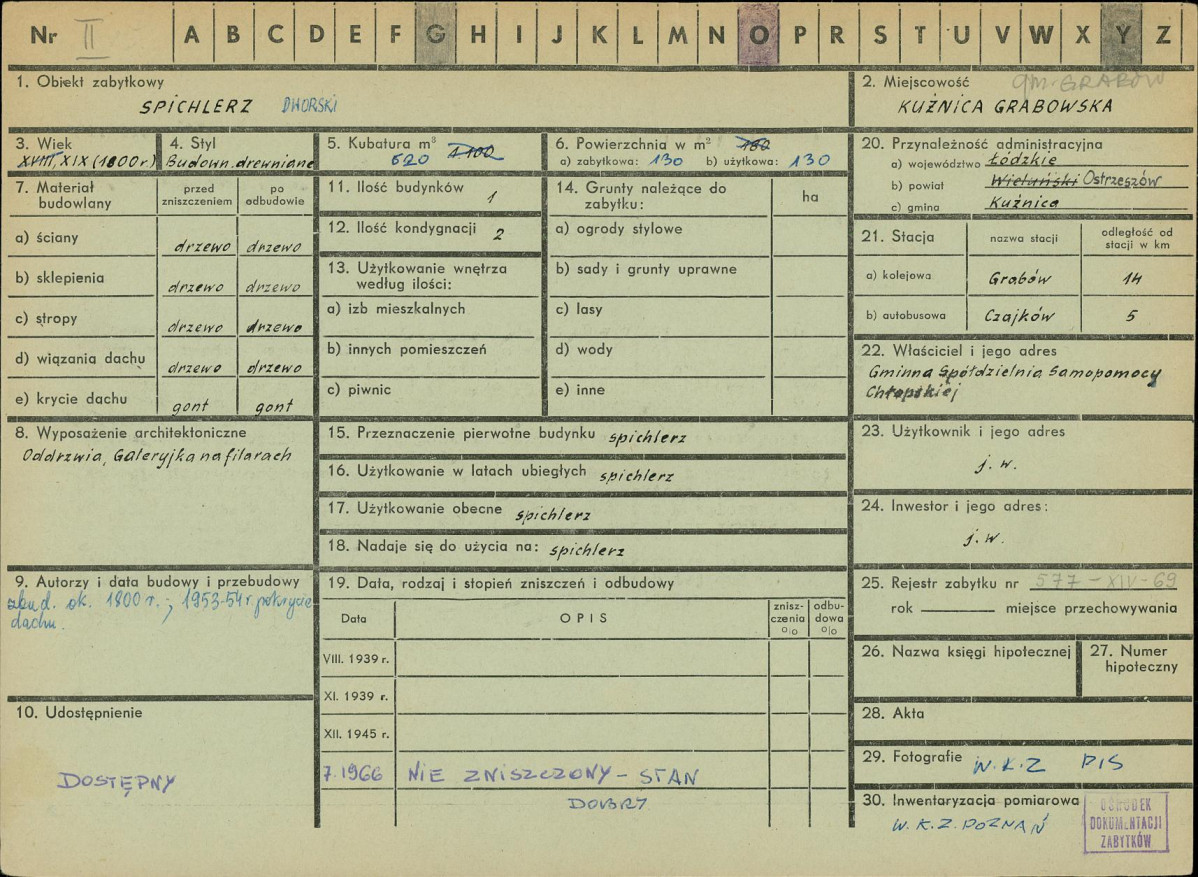 Nr II A B C D E F G H I J K L M N O P R S T U V W X Y Z
1. Obiekt zabytkowy
SPICHLERZ DWORSKI
2. Miejscowość gm. GRABÓW
KUŹNICA GRABOWSKA
3. Wiek
XVIII, XIX (1800 r.)
4. Styl
Budown. drewniane
5. Kubatura m³
620 1100
6. Powierzchnia w m² 180
a) zabytkowa: 130 b) użytkowa: 130
20. Przynależność administracyjna
a) województwo Łódzkie
b) powiat Wieluński Ostrzeszów
c) gmina Kuźnica
7. Materiał budowlany
przed zniszczeniem
po odbudowie
a) ściany drzewo drzewo
b) sklepienia drzewo drzewo
c) stropy drzewo drzewo
d) wiązania dachu drzewo drzewo
e) krycie dachu gont gont
11. Ilość budynków 1
12. Ilość kondygnacji 2
13. Użytkowanie wnętrza
według ilości:
a) izb mieszkalnych
b) innych pomieszczeń
c) piwnic
14. Grunty należące do
zabytku:
ha
a) ogrody stylowe
b) sady i grunty uprawne
c) lasy
d) wody
e) inne
21. Stacja
nazwa stacji
odległość od
stacji w km
a) kolejowa Grabów 14
b) autobusowa Czajków 5
22. Właściciel i jego adres
Gminna Spółdzielnia Samopomocy
Chłopskiej
8. Wyposażenie architektoniczne
Oddrzwia, Galeryjka na filarach
15. Przeznaczenie pierwotne budynku spichlerz
16. Użytkowanie w latach ubiegłych spichlerz
17. Użytkowanie obecne spichlerz
18. Nadaje się do użycia na: spichlerz
23. Użytkownik i jego adres
j. w.
24. Inwestor i jego adres:
j. w.
9. Autorzy i data budowy i przebudowy
zbud. ok. 1800 r.; 1953-54 r. pokrycie
dachu.
19. Data, rodzaj i stopień zniszczeń i odbudowy
Data
OPIS
znisz-
czenia
%
odbu-
dowa
%
VIII. 1939 r.
XI. 1939 r.
XII. 1945 r.
7.1966 NIE ZNISZCZONY - STAN
DOBRY
25. Rejestr zabytku nr 577-XIV-69
rok miejsce przechowywania
26. Nazwa księgi hipotecznej
27. Numer
hipoteczny
10. Udostępnienie
DOSTĘPNY
28. Akta
29. Fotografie W.K.Z PIS
30. Inwentaryzacja pomiarowa
W.K.Z. POZNAŃ
OŚRODEK
DOKUMENTACJI
ZABYTKÓW